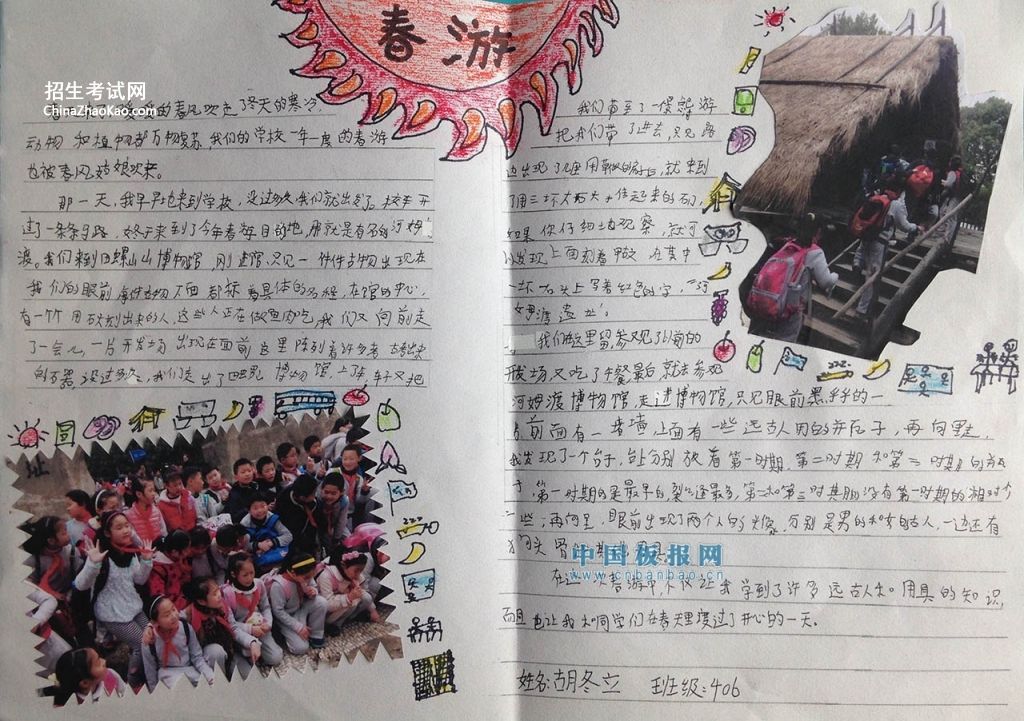 春游
招生考试网
ChinaZhaoKao.com
的春风吹走了冬天的寒冷,
动物和植物都万物复苏,我们的学校一年一度的春游
也被春风姑娘吹来。
那一天,我早早地来到学校,没过多久我们就出发了。校车开
过了一条条马路,终于来到了今年春游目的地,那就是有名的河姆
渡。我们来到田螺山博物馆,刚进馆,只见一件件古物出现在
我们的眼前,每件古物下面都标着具体的名称,在馆的中心,
有一个个用石头刻出来的人,这些人正在做鱼肉吃,我们又向前走
了一会儿,一片开发场出现在面前,这里陈列着许多考古挖出来
的石器,没过多久,我们走出了田螺山博物馆,上车,车子又把
我们带至了
把我们带了进去,只见路
边出现了几座用草做的房子,就来到
了用三块大石头住起来的石门,
如果你仔细地观察,就可
以发现,上面刻着甲骨文,在其中
一块石头上写着红色的字,“河
姆渡遗址”
我们在这里留参观了以前的
开戏场,又吃了午餐,最后,就去参观
河姆渡博物馆,走进博物馆,只见眼前黑乎乎的一
前面有一堵墙,上面有一些远古人用的瓶子,再向里走,
我发现了一个台子,台上分别放着第一时期,第二时期和第三时期的
第一时期的是最早的,裂缝最多,第二和第三时期没有第一时期的相对少
一些;再向里,眼前出现了两个人的头像,分别是男的和女的古人,一边还有
中国板报网
www.cnbanbao.cn
在这一次春游中,不仅让我学到了许多远古人和用具的知识,
而且也让我和同学们在春天里度过了开心的一天。
姓名:胡冬立 班级:406